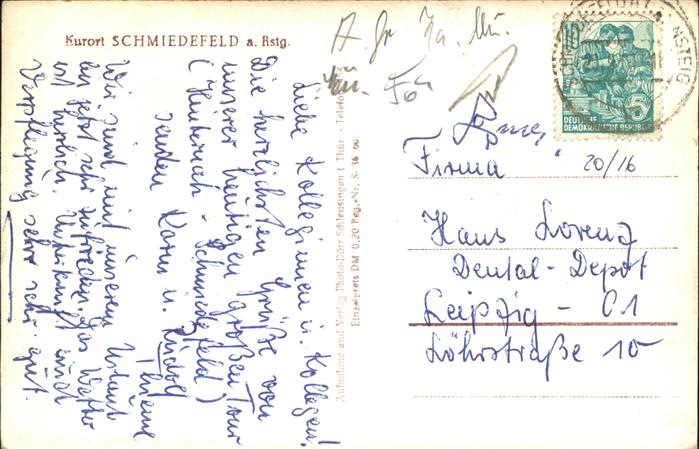 Kurort SCHMIEDEFELD a. Rstg.
Liebe Kolleginnen u. Kollegen!
Die herzlichsten Grüße von
unserer heutigen großen Tour
Schmiedefeld)
senden Karin u. Rudolf
Wir sind mit unserem Urlaub
bis jetzt sehr zufrieden. Das Wetter
ist herrlich. Unterkunft und
Verpflegung sehr sehr gut.
Aufnahme und Verlag Photo-Dörr Schleusingen i. Thür. - Telefon
Einzelpreis DM 0,20 Reg.-Nr. S. 36 60
DEUTSCHE
DEMOKRATISCHE REPUBLIK
5
Firma
20/16
Hans Lorenz
Dental-Depot
Leipzig - C1
Löhrstraße 10